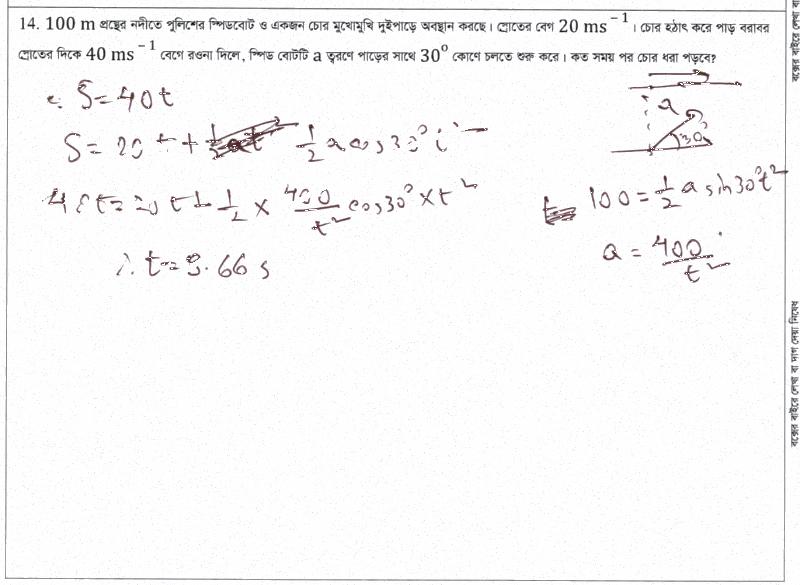 14. 100 m প্রস্থের নদীতে পুলিশের স্পিডবোট ও একজন চোর মুখোমুখি দুইপাড়ে অবস্থান করছে। স্রোতের বেগ 20 ms⁻¹। চোর হঠাৎ করে পাড় বরাবর
স্রোতের দিকে 40 ms⁻¹ বেগে রওনা দিলে, স্পিড বোটটি a ত্বরণে পাড়ের সাথে 30° কোণে চলতে শুরু করে। কত সময় পর চোর ধরা পড়বে?
S = 40t
S = 20t + ½ a cos30° t²
40t = 20t + ½ × 400/t² cos30° × t²
∴ t = 8.66 s
a
30
100 = ½ a sin30° t²
a = 400/t²
বক্সের বাইরে লেখা বা দাগ দেয়া নিষেধ